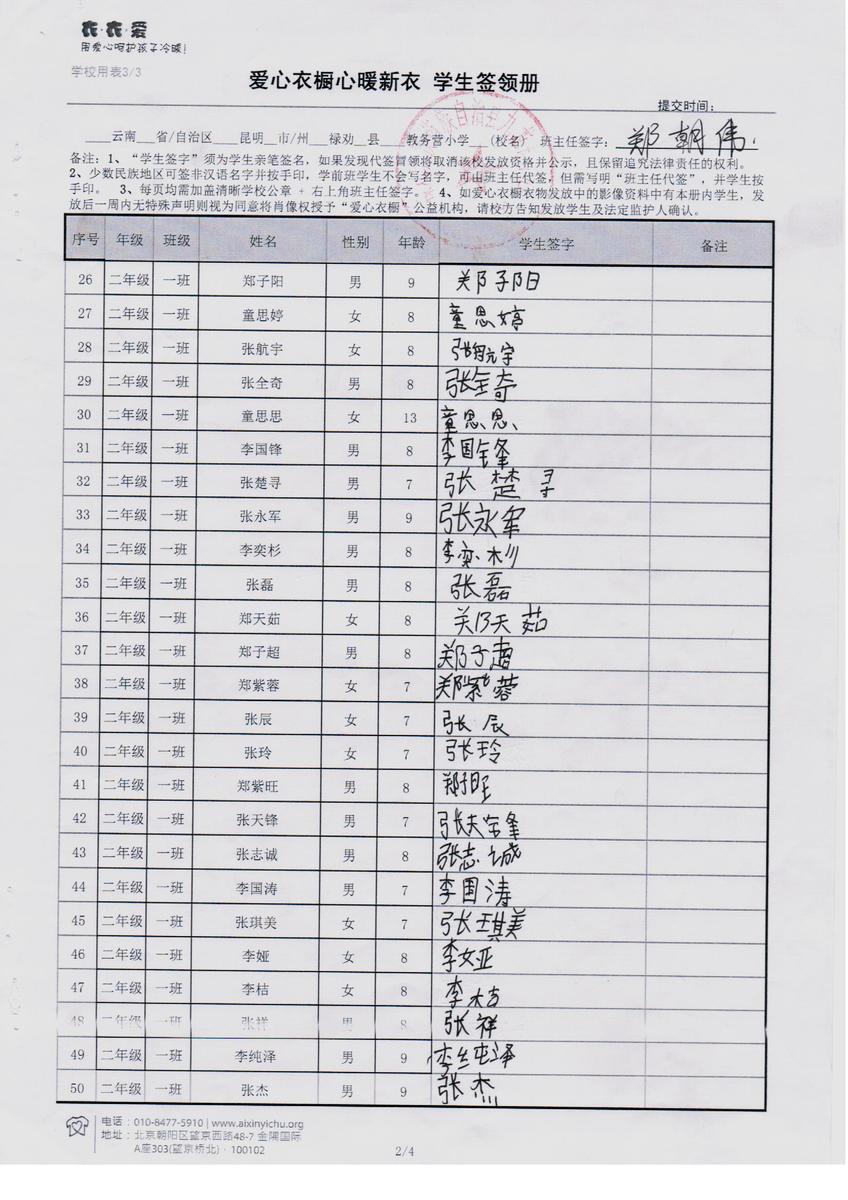 衣·衣·爱
用爱心呵护孩子冷暖!
学校用表3/3
爱心衣橱心暖新衣 学生签领册
提交时间:
云南 省/自治区 昆明 市/州 禄劝 县 教务营小学 (校名) 班主任签字: 郑朝伟
备注: 1、“学生签字”须为学生亲笔签名,如果发现代签冒领将取消该校发放资格并公示,且保留追究法律责任的权利。
2、少数民族地区可签非汉语名字并按手印,学前班学生不会写名字,可由班主任代签,但需写明“班主任代签”,并学生按
手印。 3、每页均需加盖清晰学校公章 + 右上角班主任签字。 4、如爱心衣橱衣物发放中的影像资料中有本册内学生,发
放后一周内无特殊声明则视为同意将肖像权授予“爱心衣橱”公益机构,请校方告知发放学生及法定监护人确认。
序号 年级 班级 姓名 性别 年龄 学生签字 备注
26 二年级 一班 郑子阳 男 9 郑子阳
27 二年级 一班 童思婷 女 8 童思婷
28 二年级 一班 张航宇 女 8 张航宇
29 二年级 一班 张全奇 男 8 张全奇
30 二年级 一班 童思思 女 13 童思思
31 二年级 一班 李国锋 男 8 李国锋
32 二年级 一班 张楚寻 男 7 张楚寻
33 二年级 一班 张永军 男 9 张永军
34 二年级 一班 李奕杉 男 8 李奕杉
35 二年级 一班 张磊 男 8 张磊
36 二年级 一班 郑天茹 女 8 郑天茹
37 二年级 一班 郑子超 男 8 郑子超
38 二年级 一班 郑紫蓉 女 7 郑紫蓉
39 二年级 一班 张辰 女 7 张辰
40 二年级 一班 张玲 女 7 张玲
41 二年级 一班 郑紫旺 男 8 郑旺
42 二年级 一班 张天锋 男 7 张天锋
43 二年级 一班 张志诚 男 8 张志诚
44 二年级 一班 李国涛 男 7 李国涛
45 二年级 一班 张琪美 女 7 张琪美
46 二年级 一班 李娅 女 8 李娅
47 二年级 一班 李桔 女 8 李桔
48 二年级 一班 张祥 男 8 张祥
49 二年级 一班 李纯泽 男 9 李纯泽
50 二年级 一班 张杰 男 9 张杰
电话:010-8477-5910 | www.aixinyichu.org
地址:北京朝阳区望京西路48-7 金隅国际
A座303(望京桥北) · 100102
2/4